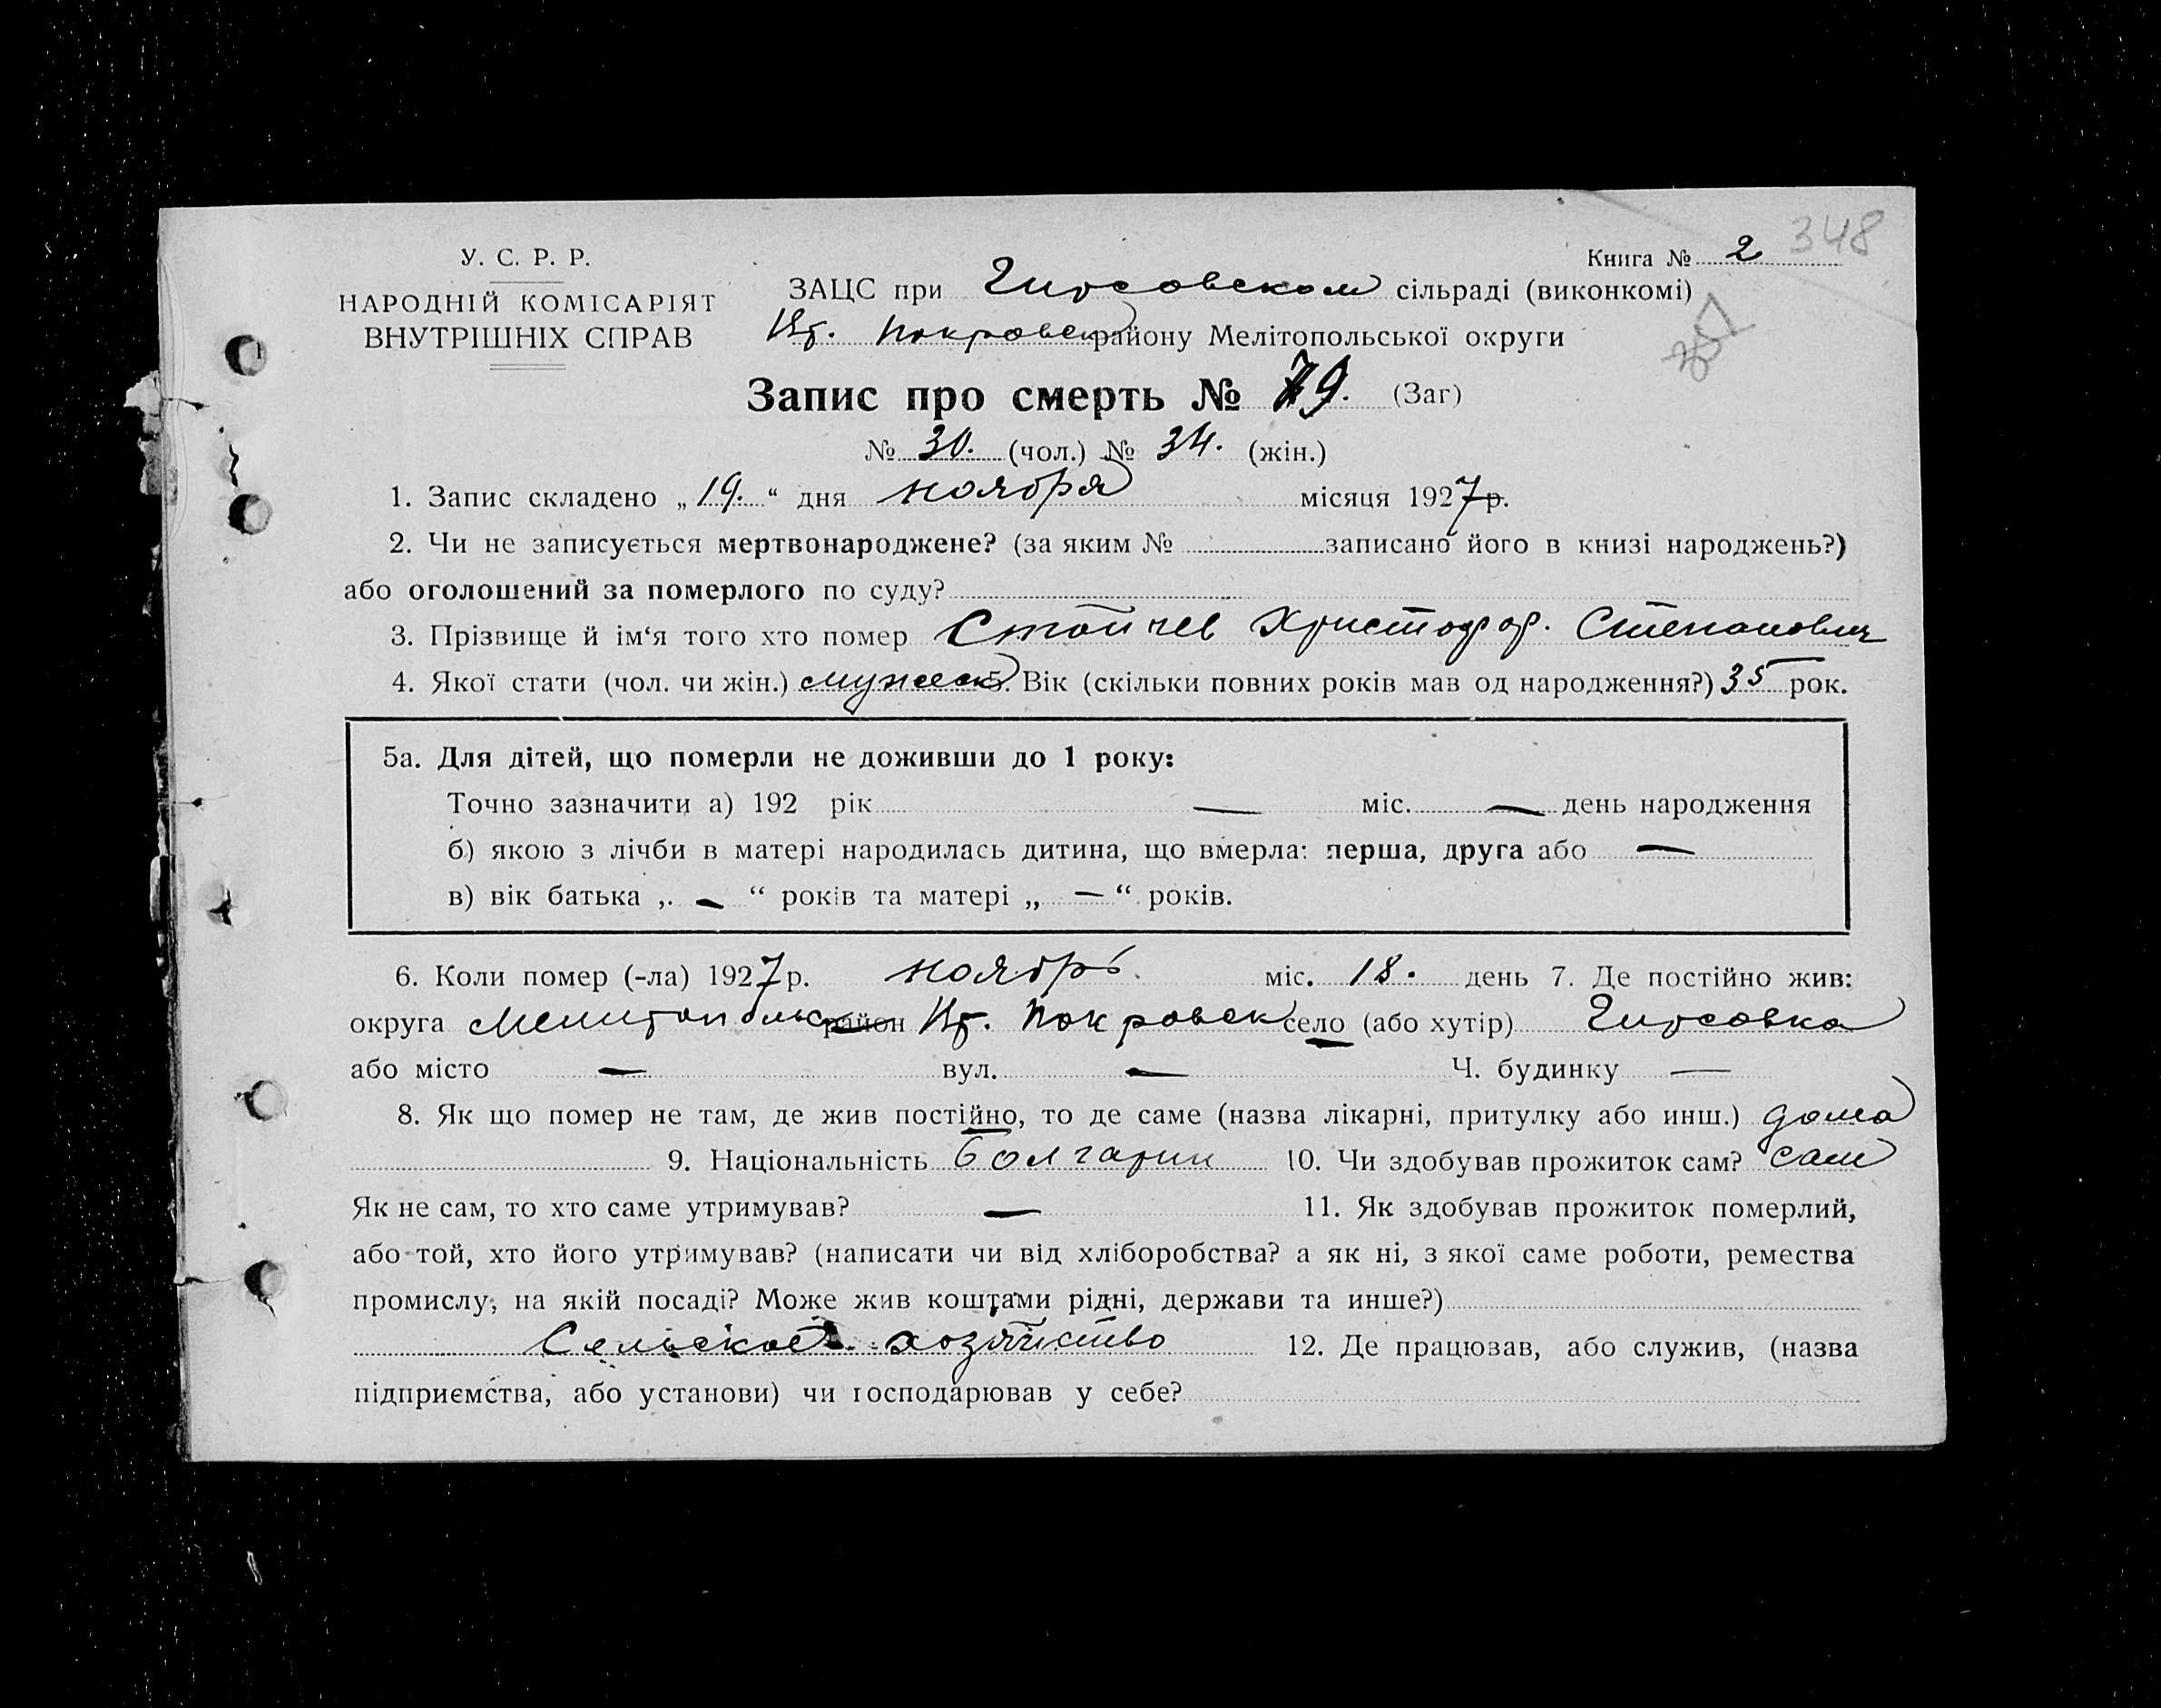 348
У. С. Р. Р.
Книга № 2
НАРОДНІЙ КОМІСАРІЯТ
ВНУТРІШНІХ СПРАВ
ЗАЦС при Гирсовском сільраді (виконкомі)
Покровск району Мелітопольської округи
Запис про смерть № 79. (Заг)
№ 30. (чол.) № 34. (жін.)
1. Запис складено „19.“ дня ноября місяця 1927 р.
2. Чи не записується мертвонароджене? (за яким № записано його в книзі народжень?)
або оголошений за померлого по суду?
3. Прізвище й ім‘я того хто помер Стойчев Христофор. Степанович
4. Якої стати (чол. чи жін.) мужск 5. Вік (скільки повних років мав од народження?) 35 рок.
5а. Для дітей, що померли не доживши до 1 року:
Точно зазначити а) 192 рік — міс. — день народження
б) якою з лічби в матері народилась дитина, що вмерла: перша, друга або —
в) вік батька „ — “ років та матері „ — “ років.
6. Коли помер (-ла) 1927 р. ноябрь міс. 18. день 7. Де постійно жив:
округа Мелитопольск район Покровск село (або хутір) Гирсовка
або місто — вул. — Ч. будинку —
8. Як що помер не там, де жив постійно, то де саме (назва лікарні, притулку або инш.) дома
9. Національність болгарин 10. Чи здобував прожиток сам? сам
Як не сам, то хто саме утримував? — 11. Як здобував прожиток померлий,
або той, хто його утримував? (написати чи від хліборобства? а як ні, з якої саме роботи, ремества
промислу, на якій посаді? Може жив коштами рідні, держави та инше?)
Сельское хозяйство 12. Де працював, або служив, (назва
підприємства, або установи) чи господарював у себе?